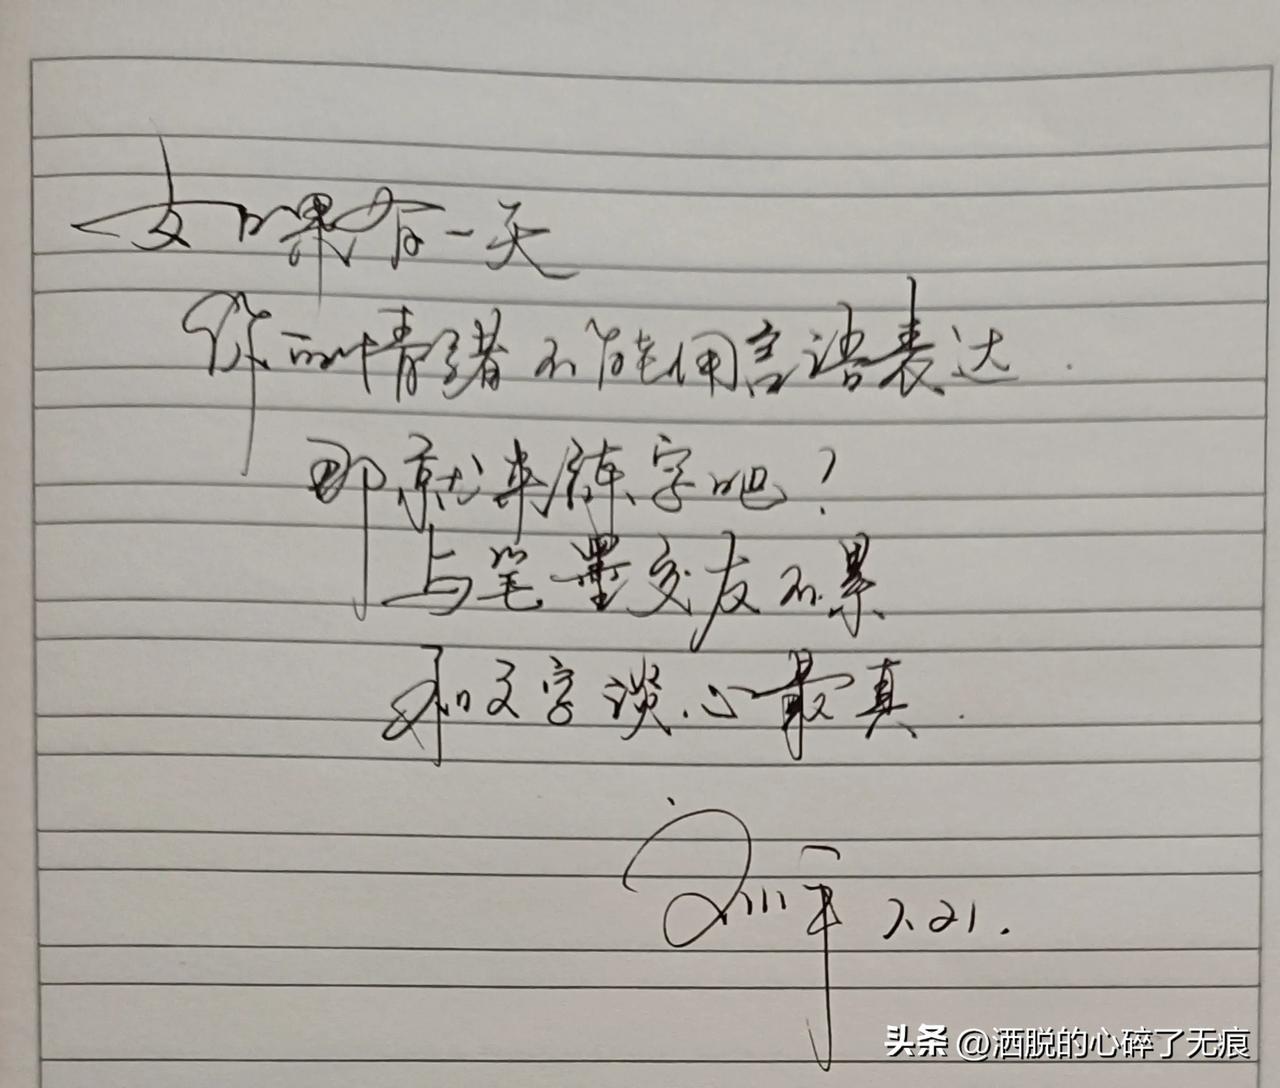 如果有一天
你的情绪不能用言语表达.
那就来练字吧?
与笔墨交友不累
和文字谈心最真.
7.21.
头条 @洒脱的心碎了无痕